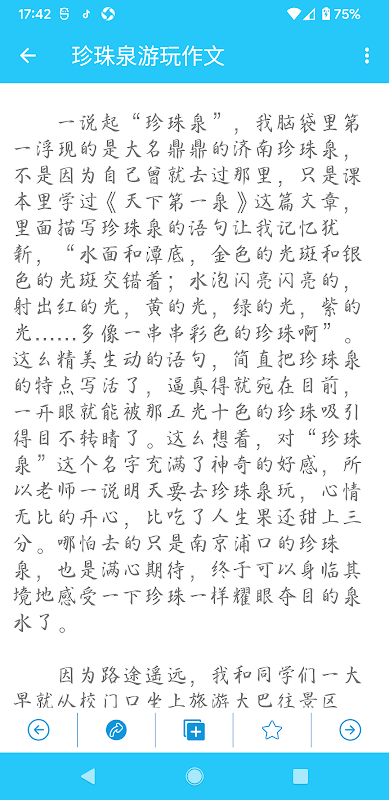 17:42
75%
珍珠泉游玩作文
一说起“珍珠泉”，我脑袋里第
一浮现的是大名鼎鼎的济南珍珠泉，
不是因为自己曾就去过那里，只是课
本里学过《天下第一泉》这篇文章，
里面描写珍珠泉的语句让我记忆犹
新，“水面和潭底，金色的光斑和银
色的光斑交错着；水泡闪亮闪亮的，
射出红的光，黄的光，绿的光，紫的
光……多像一串串彩色的珍珠啊”。
这么精美生动的语句，简直把珍珠泉
的特点写活了，逼真得就宛在目前，
一开眼就能被那五光十色的珍珠吸引
得目不转睛了。这么想着，对“珍珠
泉”这个名字充满了神奇的好感，所
以老师一说明天要去珍珠泉玩，心情
无比的开心，比吃了人生果还甜上三
分。哪怕去的只是南京浦口的珍珠
泉，也是满心期待，终于可以身临其
境地感受一下珍珠一样耀眼夺目的泉
水了。
因为路途遥远，我和同学们一大
早就从校门口坐上旅游大巴往景区